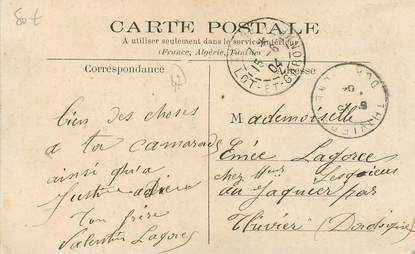 CARTE POSTALE
À utiliser seulement dans le service intérieur
(France, Algérie, Tunisie)
Correspondance
LOT-ET-GAR
04
bien des choses
a ta camarade
ainsi qu'a
Justine
ton frère
Valentin Lagorce
Mademoiselle
Emée Lagorce
chez Mme
du Jaquier par
Thiviér (Dordogne)